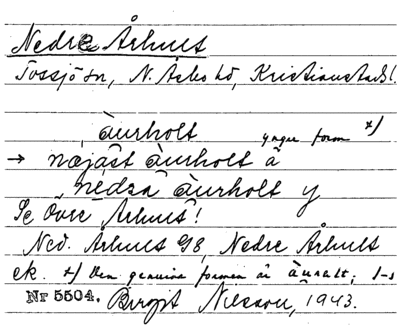 Nedre Århult
Tossjö sn, N. Åsbo hd, Kristianstads l.
àurholt yngre form x)
→ næjást àurholt ä
nedra àurholt y
Se Övre Århult!
Ned. Århult GB, Nedre Århult
ek. x) Den genuina formen är àuralt;
Nr 5504. Birgit Nilsson, 1943.